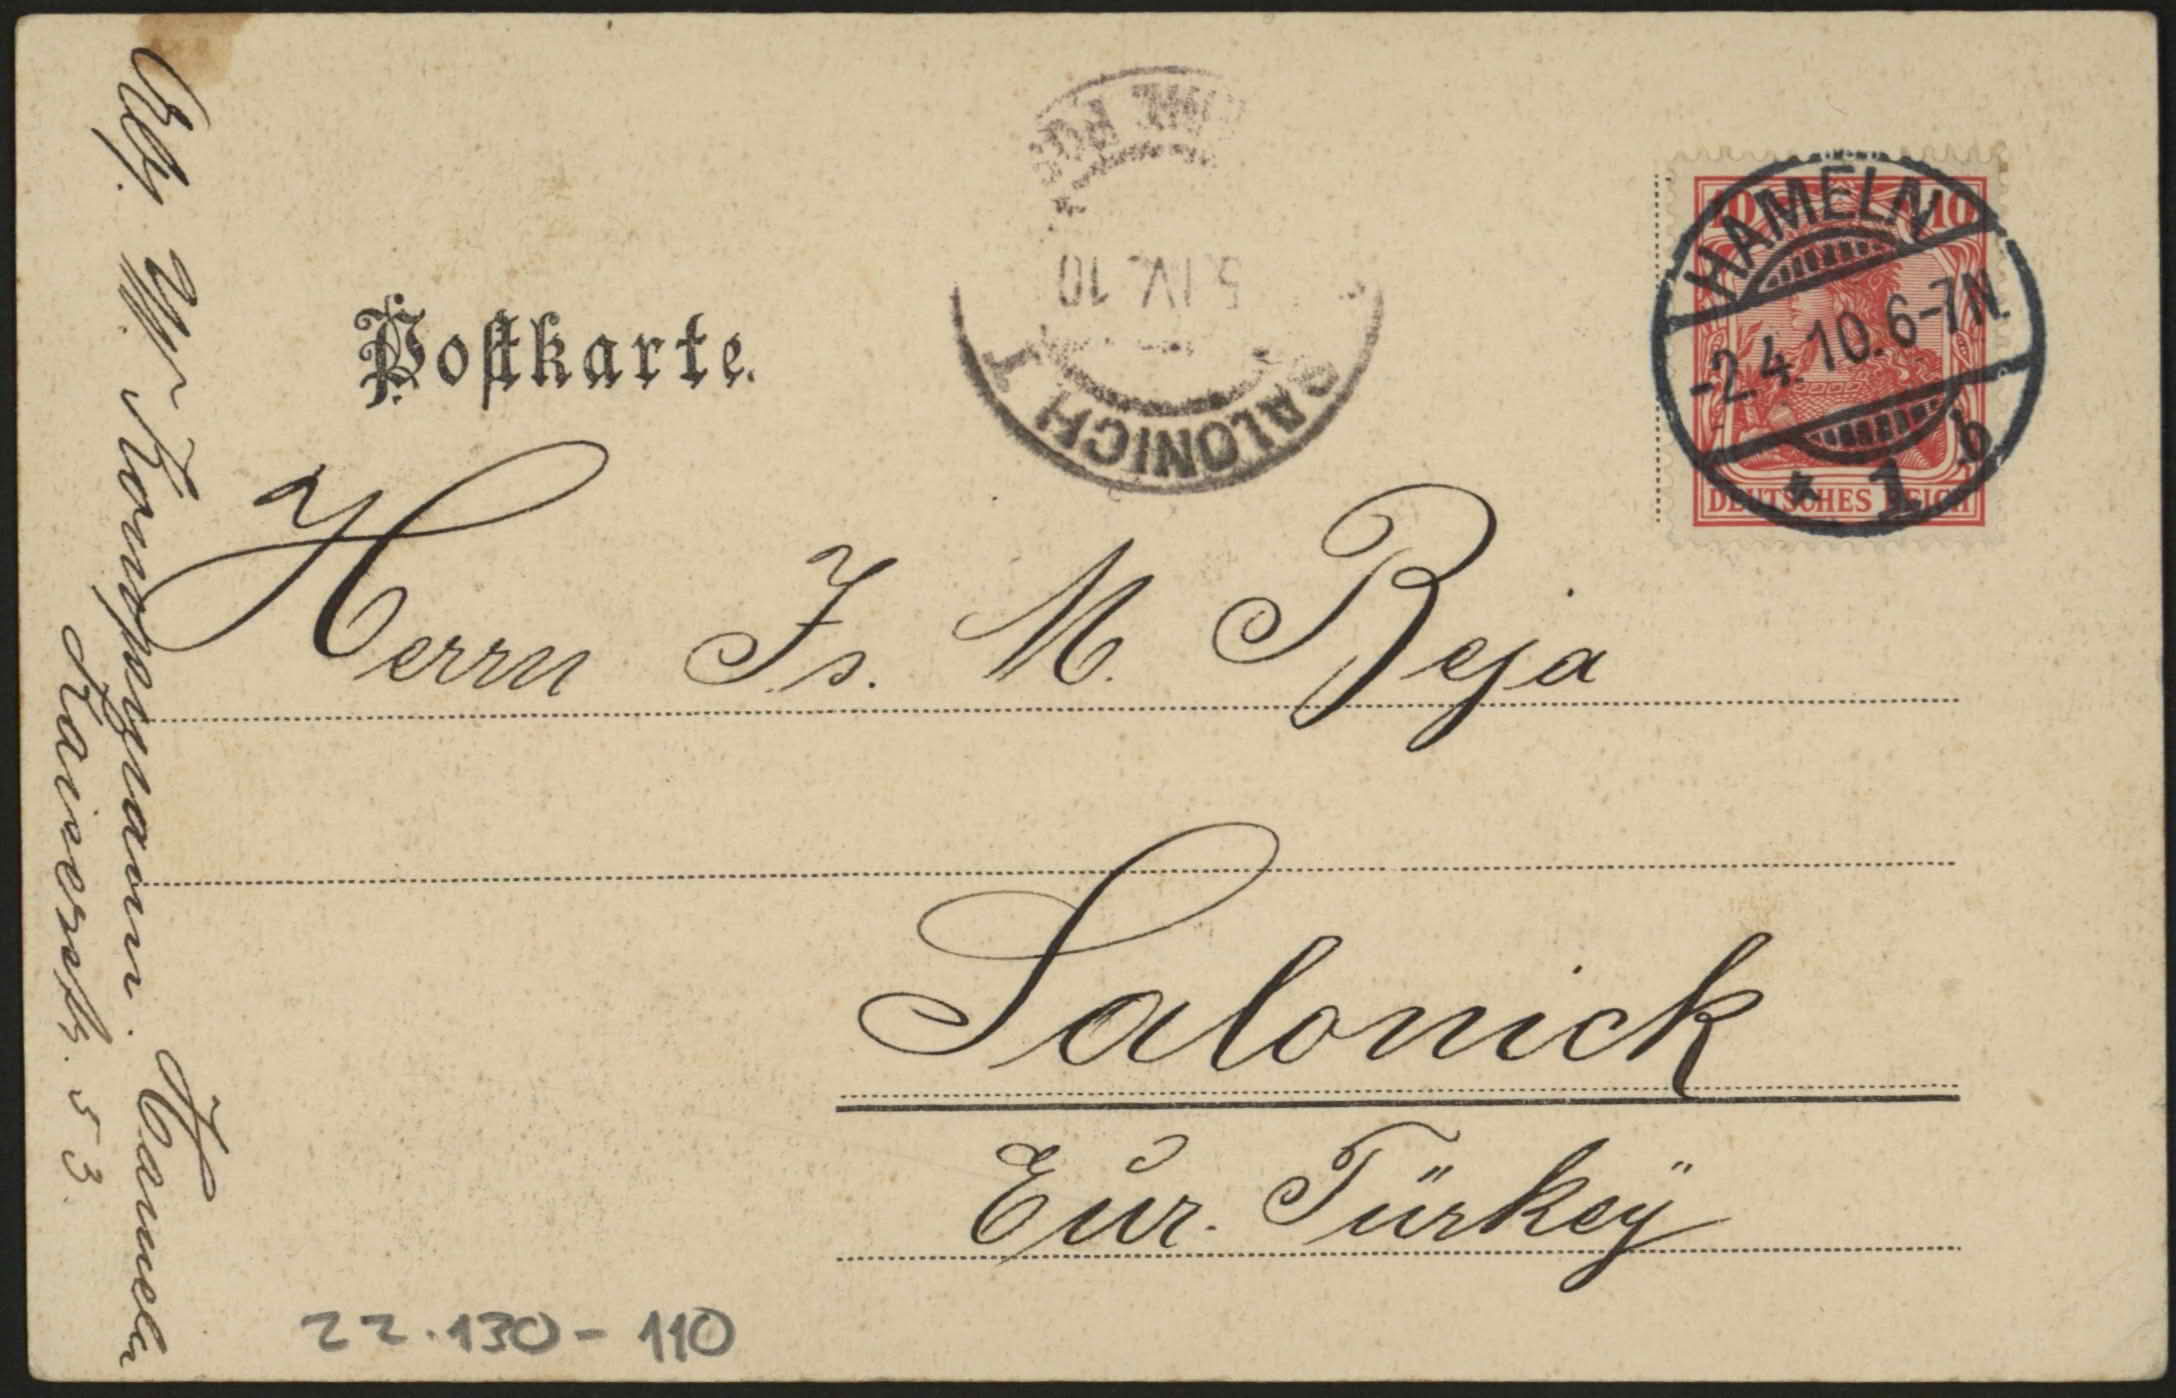 Postkarte.
HAMELN
-2.4.10.6-7N.
* 1 b
10 10
DEUTSCHES REICH
SALONICH I
5.IV.10
Herrn Js. M. Beja
Salonick
Eur. Türkeÿ
Abs. W. Hameln
Kaiserstr. 53
22.130-110